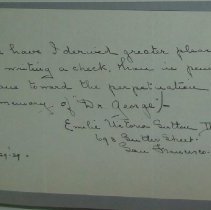 have I derived greater pleas
writing a check, than in
toward the perpetuation
memory of "Dr. George"/-
Emilie Victoria Sutton
693 Sutter Street
San Francisco